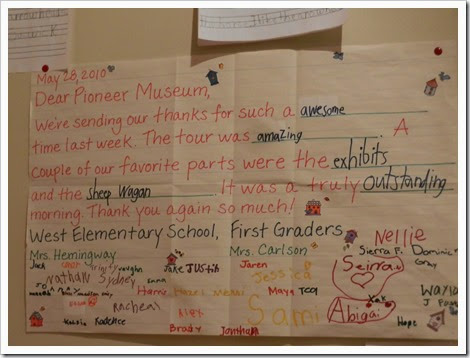 May 28, 2010
Dear Pioneer Museum,
We're sending our thanks for such a awesome
time last week. The tour was amazing. A
couple of our favorite parts were the exhibits
and the Sheep Wagan. It was a truly outstanding
morning. Thank you again so much!
West Elementary School, First Graders
Mrs. Hemingway Mrs. Carlson Nellie
Jack Jake Justin Jaren Sierra P. Dominic
Nathan Sydney Jessica Seirra
Emma Maya
Harris
Rachel Alex Sami Abigail
Kadence Hope
Brady Jonathan